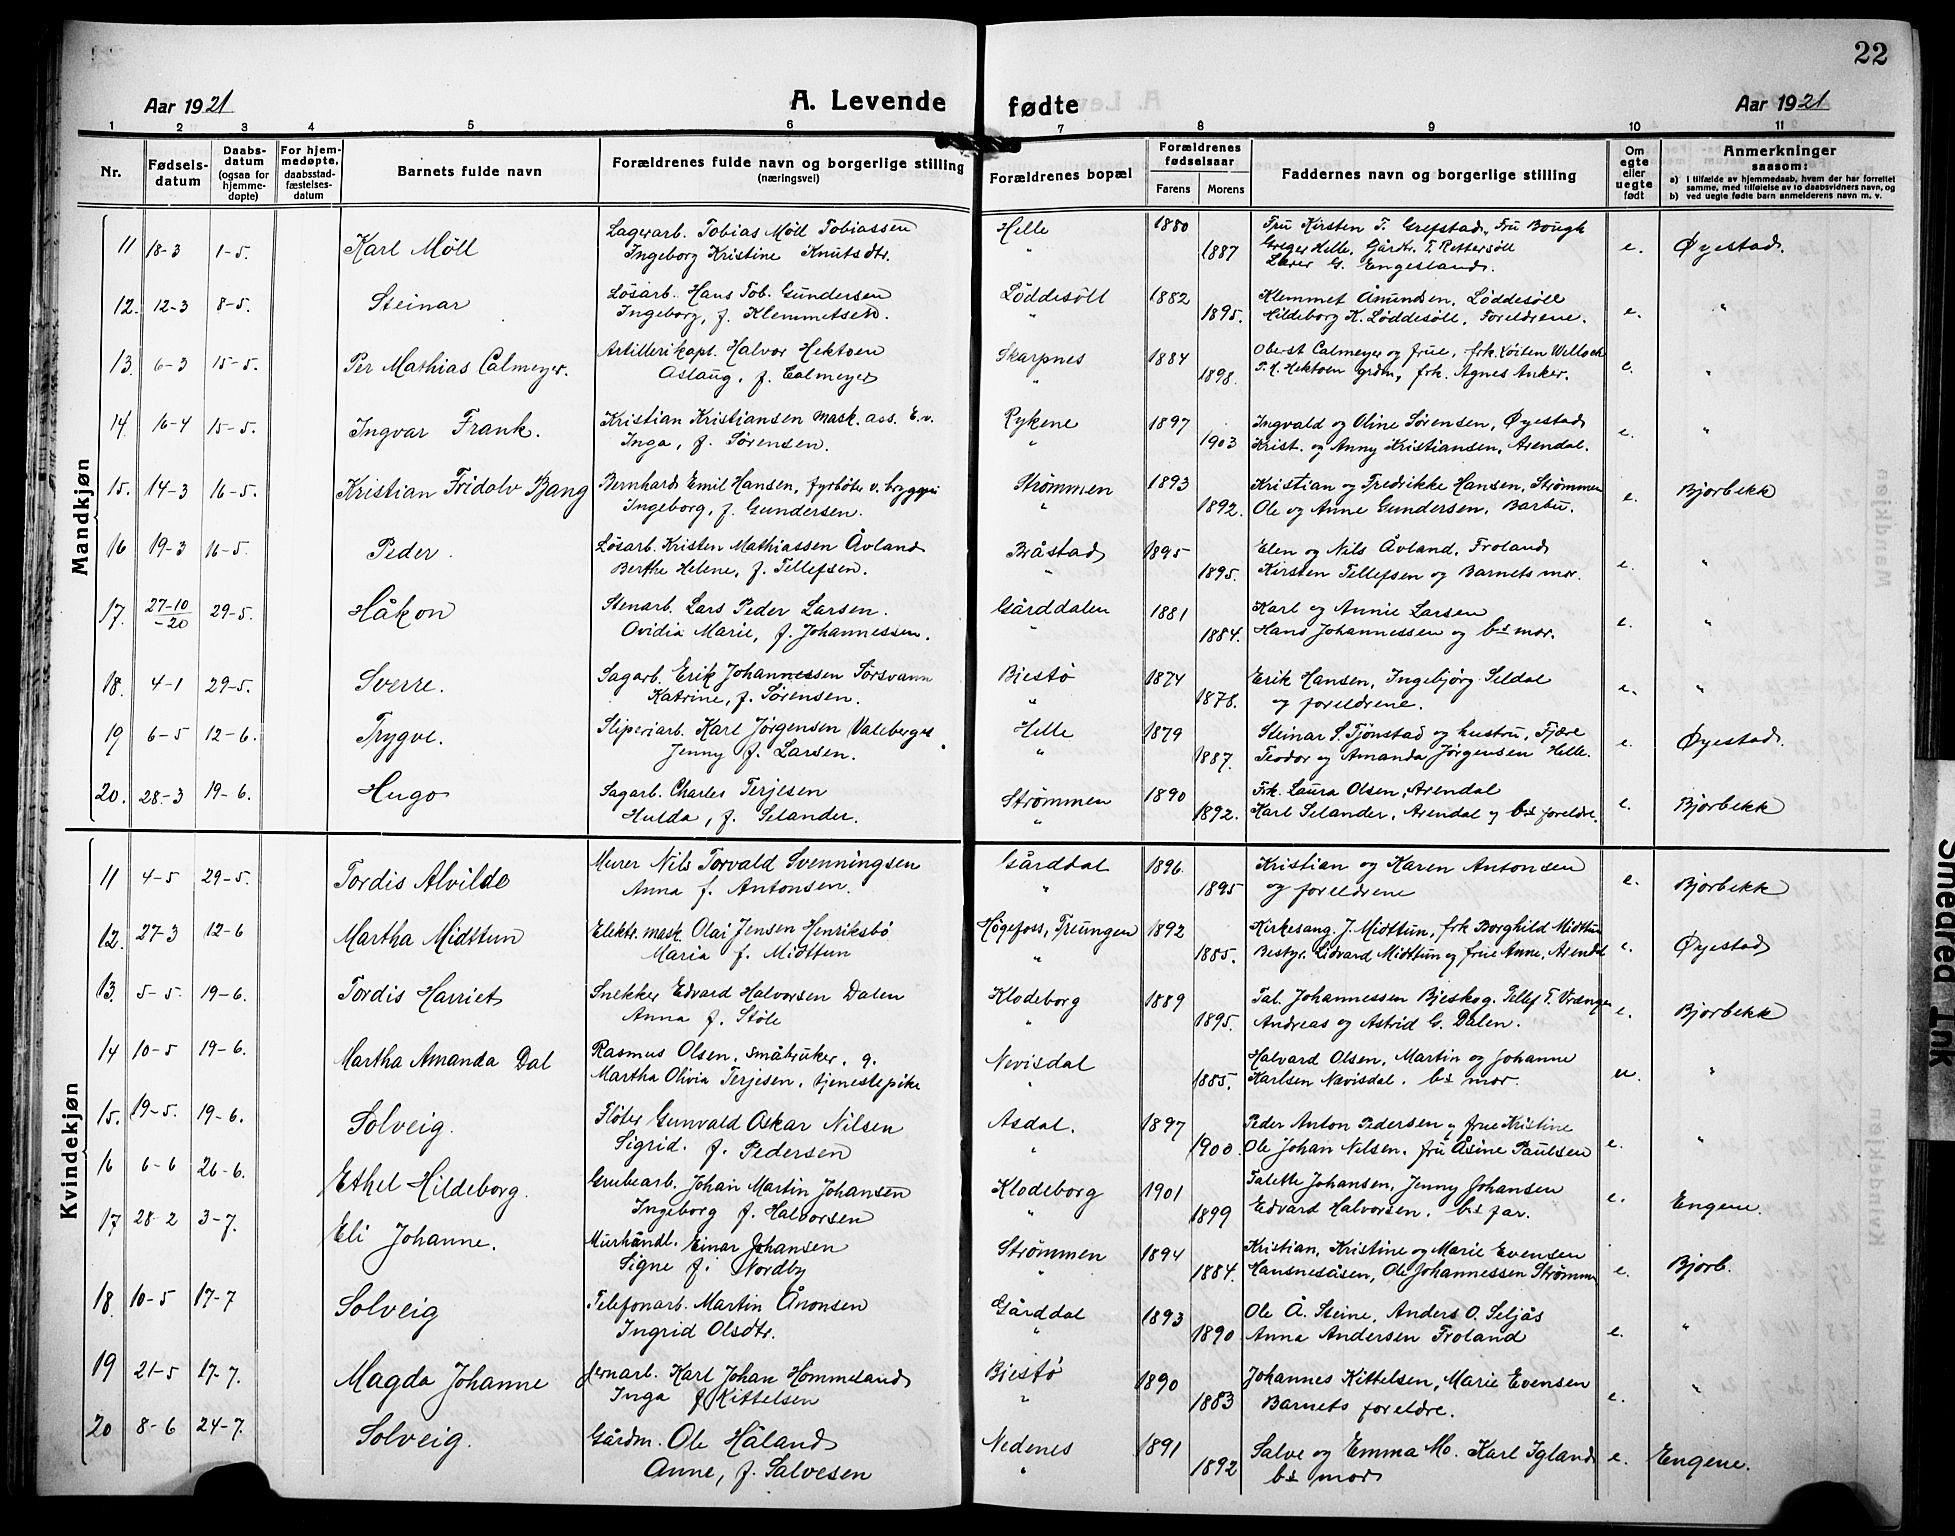 22
Aar 1921 A. Levende fødte Aar 1921
1 2 3 4 5 6 7 8 9 10 11
Nr. Fødsels-datum Daabs-datum (ogsaa for hjemme-døpte) For hjem-medøpte, daabsstad-fæstelses-datum Barnets fulde navn Forældrenes fulde navn og borgerlige stilling (næringsvei) Forældrenes bopæl Forældrenes fødselsaar Farens Morens Faddernes navn og borgerlige stilling Om egte eller uegte født Anmerkninger saasom:
a) i tilfælde av hjemmedaab, hvem der har forrettet samme, med tilføielse av to daabsvidners navn, og
b) ved uegte fødte barn anmelderens navn m. v.
Mandkjøn
11 18-3 1-5. Karl Møll Lagerarb. Tobias Møll Tobiassen Helle 1880 Fru Kirsten T. Grefstad, Fru Bough
Ingeborg Kristine Knutsdtr. " 1887 Greger Helle, Gårdbr. T. Rettersöll e. Øyestad.
Lærer G. Engesland.
12. 12-3 8-5. Steinar Løsarb. Hans Tob. Gundersen Løddesöll 1882 Klemmet Åmundsen, Løddesöll
Ingeborg, f. Klemmetsen. " 1895. Hildeborg K. Løddesöll, Foreldrene. e. "
13. 6-3 15-5. Per Mathias Calmeyer. Artillerikapt. Halvor Hektoen Skarpnes 1884 Oberst Calmeyer og frue, frk. Løiten Willoch
Aslaug, f. Calmeyer " 1898. T. H. Hektoen grdm, frk. Agnes Anker. e. "
14. 16-4 15-5. Ingvar Frank. Kristian Kristiansen mask. ass. E.v. Rykene 1897 Ingvald og Oline Sørensen, Øyestad
Inga, f. Sørensen. " 1903 Krist. og Anny Kristiansen, Arendal. e. "
15. 14-3 16-5. Kristian Fridolv Bang Bernhard Emil Hansen, fyrbøter v. bryggeri Strømmen 1893 Kristian og Fredrikke Hansen, Strømmen
Ingeborg, f. Gundersen. " 1892. Ole og Anne Gundersen, Barbu. e. Bjorbekk
16 19-3 16-5. Peder. Løsarb. Kristen Mathiassen Åvland Bråstad 1895 Elen og Nils Åvland, Froland
Berthe Helene, f. Tellefsen. " 1895. Kirsten Tellefsen og Barnets mor. e. "
17. 27-10-20 29-5. Håkon Stenarb. Lars Peder Larsen. Gårddalen 1881 Karl og Annie Larsen
Ovidia Marie, f. Johannessen. " 1884. Hans Johannessen og bs mor. e. "
18. 4-1 29-5. Sverre. Sagarb. Erik Johannessen Sørsvann Bjestø 1874 Erik Hansen, Ingebjörg Seldal
Katrine, f. Sørensen. " 1878. og foreldrene. e. "
19 6-5 12-6. Trygve. Sliperiarb. Karl Jørgensen Valeberget Helle 1879 Steinar S. Tjönstad og hustru, Fjære
Jenny f. Larsen. " 1887. Teodor og Amanda Jørgensen Helle. e. Øyestad.
20. 28-3 19-6. Hugo Sagarb. Charles Terjesen Strømmen 1890 Frk. Laura Olsen, Arendal
Hulda, f. Selander. " 1892. Karl Selander, Arendal og bs foreldre. e. Bjorbekk
Kvindekjøn
11 4-5 29-5. Tordis Alvilde Murer Nils Torvald Svenningsen Gårddal 1896. Kristian og Karen Antonsen
Anna f. Antonsen. " 1895 og foreldrene e. Bjorbekk
12. 27-3 12-6 Martha Midttun Elektr. mask. Olai Jensen Henriksbø Høgefoss, Treungen 1892 Kirkesang. J. Midttun, frk Borghild Midttun
Maria f. Midttun " 1885. Bestyr. Lidvard Midttun og frue Anne, Arendal e. Øyestad
13. 5-5. 19-6. Tordis Harriet Snekker Edvard Halvorsen Dalen Klodeborg 1889 Tal. Johannessen Bjeskog. Tellef T. Vrængen
Anna f. Støle " 1895. Andreas og Astrid G. Dalen. e. Bjorbekk
14 10-5 19-6. Martha Amanda Dal Rasmus Olsen, småbruker, g. Nevisdal Halvard Olsen, Martin og Johanne
Martha Olivia Terjesen, tjenestepike " 1885. Karlsen Nævisdal. bs mor. u. "
15. 19-5. 19-6. Solveig. Fløter Gunvald Oskar Nilsen Asdal. 1897 Peder Anton Pedersen og frue Kristine
Sigrid. f. Pedersen " 1900. Ole Johan Nilsen. fru Åsine Paulsen e. "
16 6-6 26-6. Ethel Hildeborg. Grubearb. Johan Martin Johansen Klodeborg 1901 Talette Johansen, Jenny Johansen
Ingeborg f. Halvorsen " 1899 Edvard Halvorsen. bs far. e. Engene.
17 28-2 3-7. Eli Johanne. Murhåndl. Einar Johansen Strømmen 1894 Kristian, Kristine og Marie Evensen
Signe f. Nordby " 1884. Hansnesåsen, Ole Johannessen Strømmen e. Bjorb.
18 10-5 17-7 Solveig Telefonarb. Martin Ånonsen Gårddal 1893 Ole Å. Steine, Anders O. Seljås
Ingrid Olsdtr. " 1890 Anna Andersen Froland e. "
19 21-5 17-7. Magda Johanne Jernarb. Karl Johan Hommeland Bjestø 1890 Johannes Kittelsen, Marie Evensen
Inga f. Kittelsen " 1883 Barnets foreldre. e. "
20 8-6 24-7. Solveig. Gårdm. Ole Håland Nedenes 1891 Salve og Emma Mo. Karl Igland
Anne, f. Salvesen " 1892 bs mor e. Engene.
Smeared Ink